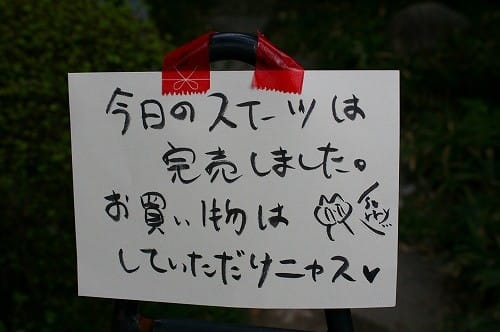 今日のスイーツは
完売しました。
お買い物は
していただけニャス♥